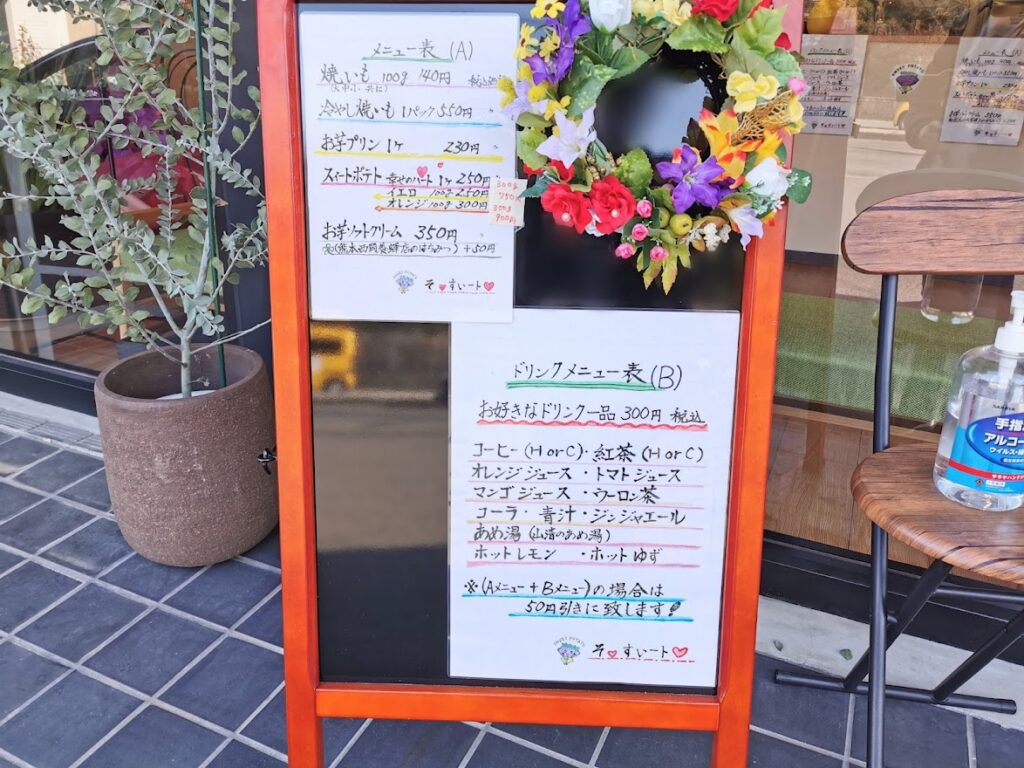 メニュー表(A)
焼いも 100g 140円 税込
(大中小・共に)
冷やし焼いも 1パック 550円 〃
お芋プリン 1ヶ 230円 〃
スイートポテト 幸せのハート 1ヶ 250円
イエロー 100g 250円
オレンジ 100g 300円
300g
750円
300g
900円
お芋ソフトクリーム 350円 〃
+50円
そ♥すいート♥
ドリンクメニュー表(B)
お好きなドリンク一品 300円 税込
コーヒー(HorC)・紅茶(HorC)
オレンジジュース・トマトジュース
マンゴジュース・ウーロン茶
コーラ・青汁・ジンジャエール
あめ湯(山清のあめ湯)
ホットレモン・ホットゆず
※(Aメニュー+Bメニュー)の場合は
50円引きに致します!
SWEET POTATO
そ♥すいート♥
手指
アルコー